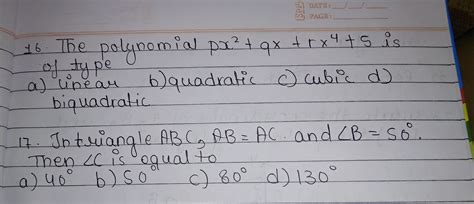 DATE: / /
PAGE:
16 The polynomial px² + qx + rx⁴ + 5 is
of type
a) linear b) quadratic c) cubic d)
biquadratic
17. In triangle ABC, AB = AC and ∠B = 50°.
Then ∠C is equal to
a) 40° b) 50° c) 80° d) 130°